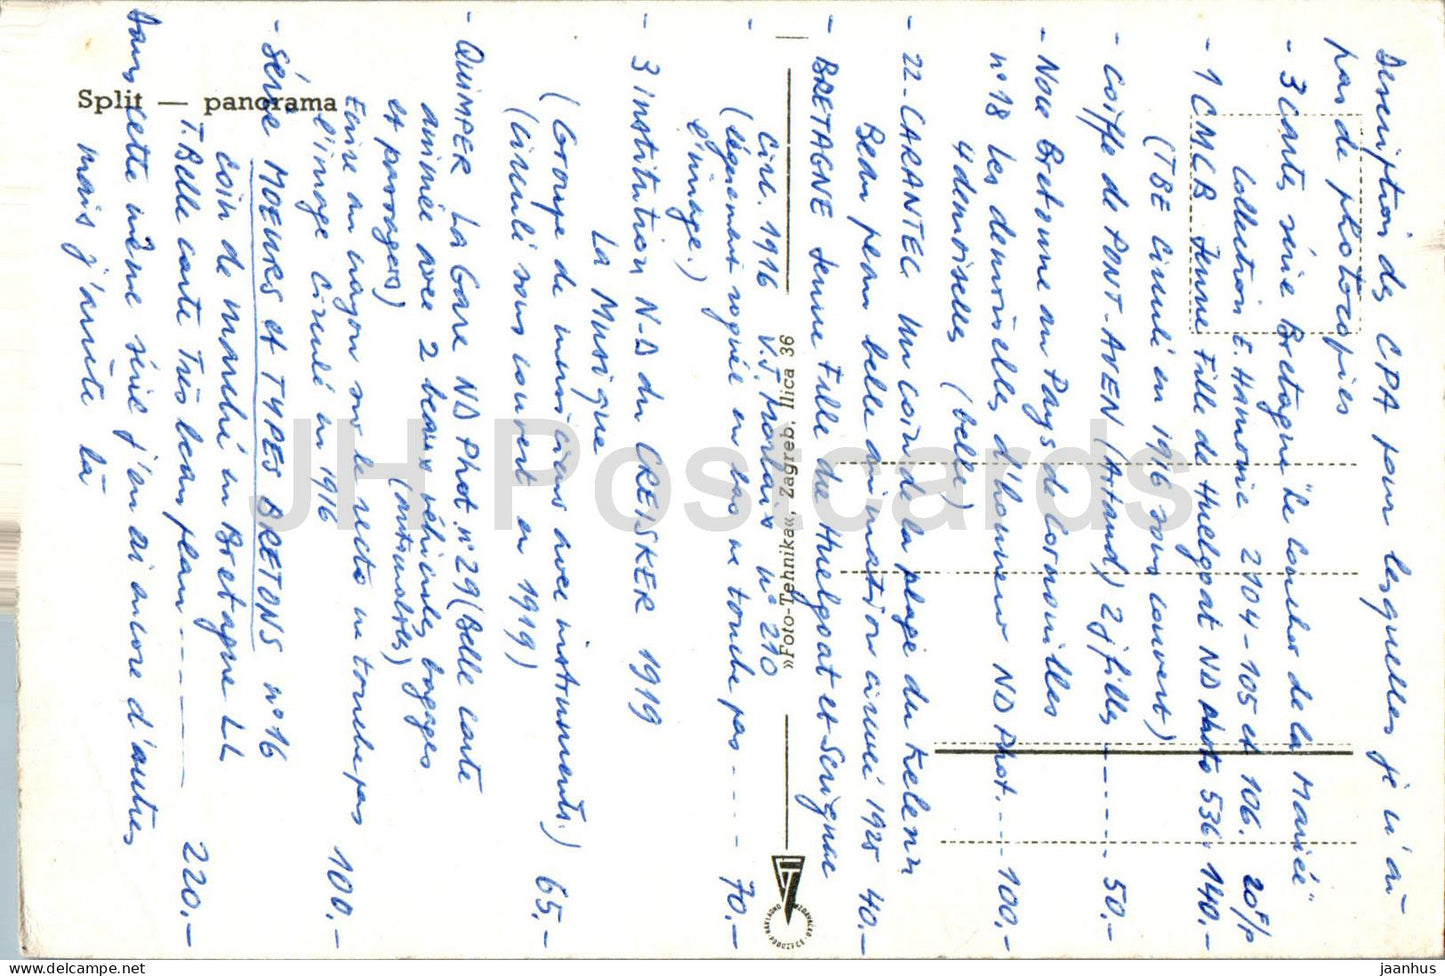 Description des CPA pour lesquelles je n'ai
pas de photocopies
- 3 Cartes série Bretagne "le coucher de la Mariée"
Collection E. Hamonic 2104-105 et 106. 20F/p
- 1 CMCB Jeune Fille de Huelgoat ND photo 536. 140.-
(TBE Circulé en 1916 sous couvert)
- Coiffe de PONT-AVEN (Artaud) 2 j filles ------ 50.-
- Noce Bretonne au Pays de Cornouilles
n° 18 les demoiselles d'honneur ND Phot. ---- 100.-
4 demoiselles (belle)
- 22-CARANTEC Un coin de la plage du Kelenn
Beau plan belle animation circulé 1925 40.-
- BRETAGNE Jeune Fille de Huelgoat et Scrignac
Circ. 1916 V.T. Morlaix n° 210
(légèrement rognée en bas ne touche pas ---- 70.-
l'image.)
- 3 institution N-D du CREISKER 1919
La Musique
(Groupe de musiciens avec instruments.) 65.-
(Circulé sous couvert en 1919)
- QUIMPER La Gare ND Phot. n° 29 (Belle carte
animée avec 2 beaux véhicules bagages
et passagers) (automobiles)
Ecrire au crayon sur le recto ne touche pas
l'image Circulé en 1916 100.-
- Série MOEURS et TYPES BRETONS n° 16
Coin de marché en Bretagne LL
T. Belle carte Très beau plan -------- 220.-
Dans cette même série j'en ai encore d'autres
mais j'arrête là
Split — panorama
»Foto-Tehnika«, Zagreb, Ilica 36
JH Postcards
jaanhus / delcampe.net